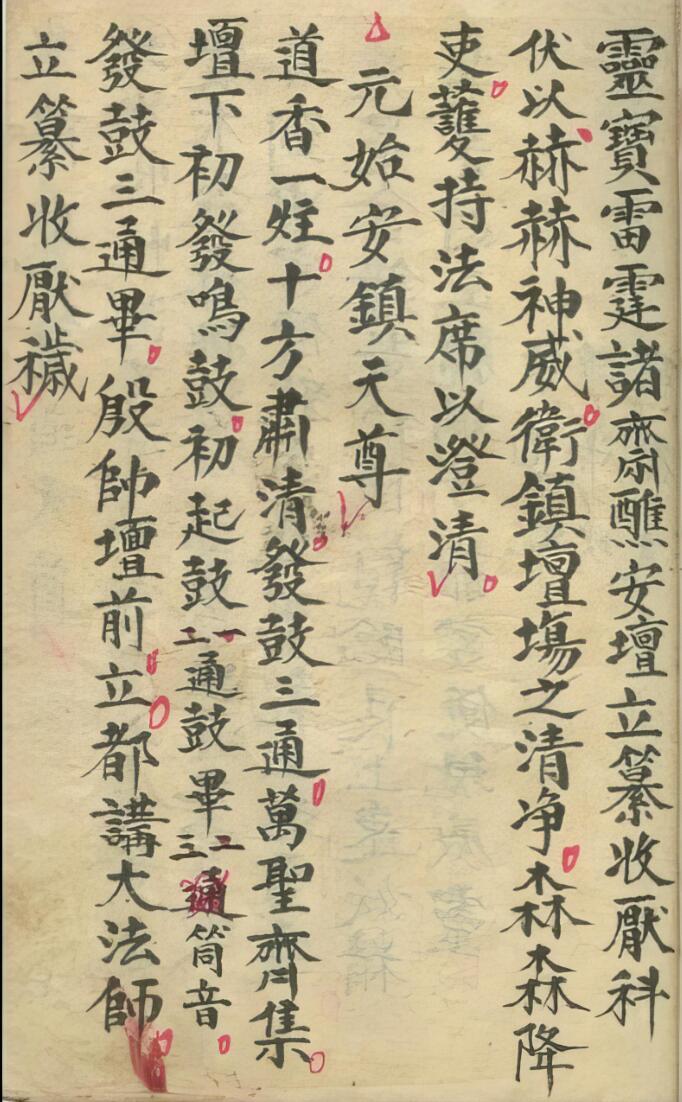 靈寶雷霆諸齋醮安壇立纂收厭科
伏以赫赫神威衛鎮壇塲之清净森森降
吏護持法席以澄清
元始安鎮天尊
道香一炷十方肅清發鼓三通萬聖齊集
壇下初發鳴鼓初起鼓一二通鼓畢二三通筒音
發鼓三通畢殷師壇前立都講大法師
立纂收厭穢